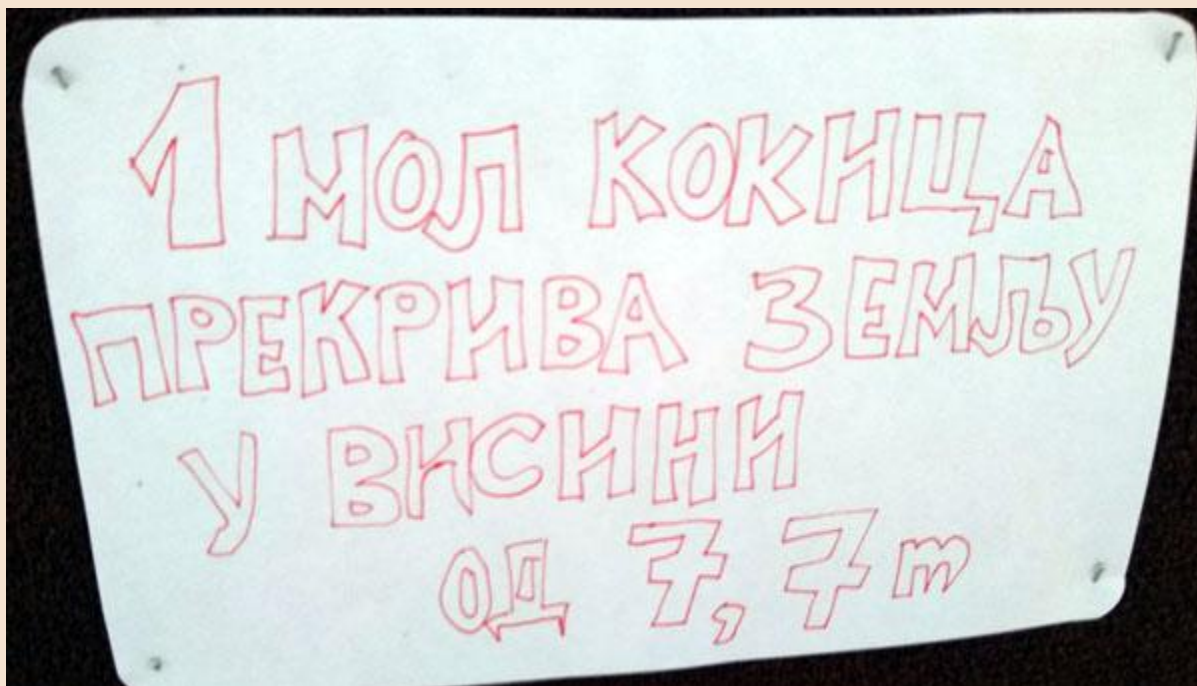 1 МОЛ КОКИЦА
ПРЕКРИВА ЗЕМЉУ
У ВИСИНИ
ОД 7,7m